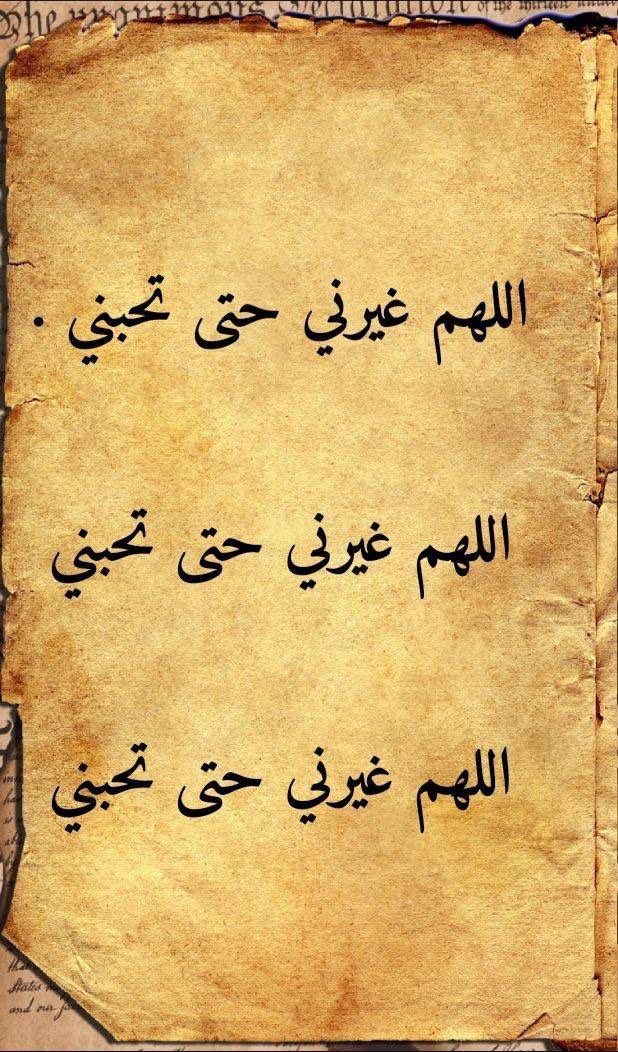 The unanimous Declaration of the thirteen united
اللهم غيرني حتى تحبني .
اللهم غيرني حتى تحبني
اللهم غيرني حتى تحبني
that
States
and our